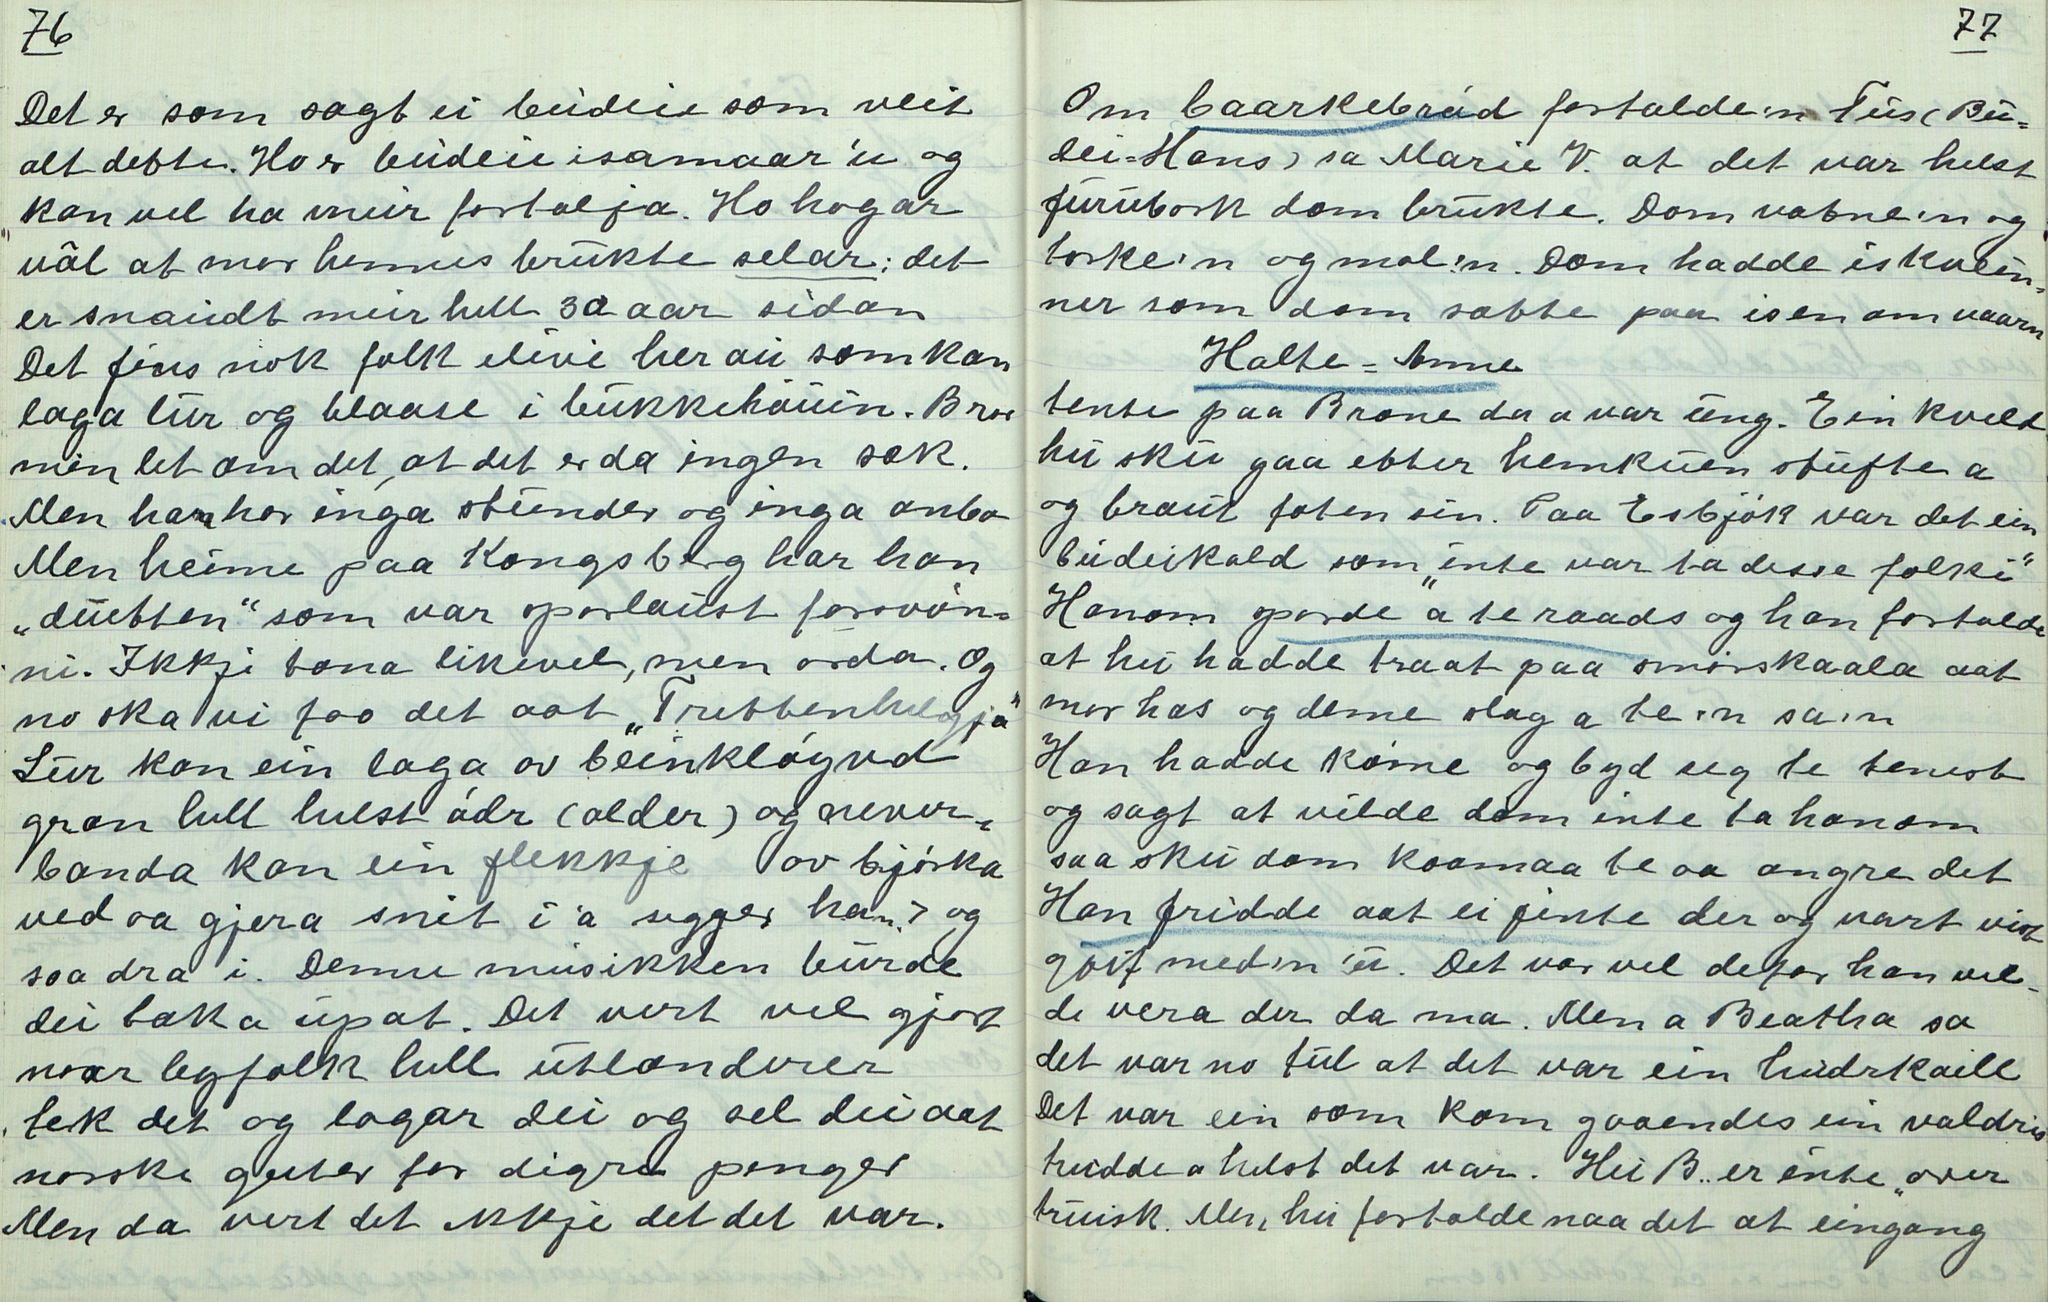 76
Det er som sagt ei budeie som veit
alt dette. Ho er budeie isamaar'u og
kan vel ha meir fortelja. Ho hogar
väl at mor hennes brukte selar; det
er snaudt meir hell 30 aar sidan
Det fins nok folk elivi her au som kan
laga lur og blaase i bukkehöüin. Bror
min let om det, at det er da ingen sak.
Men han har inga stunder og inga anbo
Men heime paa Kongsberg har han
„duetten" som var sporlaust forsvön-
ni. Ikkji tona likevel, men orda. Og
no ska vi faa det aat „Trettenhelgja"
Lur kan ein laga ov beinkløyvd
gran hell helst ådr (older) og never-
banda kan ein flekkje ov bjørka
ved aa gjera snit i 'a segger han? og
saa dra i. Denne musikken burde
dei taka upat. Det vert vel gjort
naar byfolk hell utlendinger
tek det og lagar dei og sel dei aat
norske guter for digre penger
Men da vert det ikkje det det var.
77
Om baarkebrød fortalde'n Tüs (Bu-
dei-Hans) sa Marie V. at det var helst
furubork dom brukte. Dom vatne'n og
torke'n og mol'n. Dom hadde iskvein-
ner som dom sette paa isen om vaarn
Halte-Anne
tente paa Brone da a var ung. Ein kveld
hu sku gaa etter hemkuen stufte a
og braut foten sin. Paa Esbjøk var det ein
budeikald som „inte var ta desse folki"
Honom sporde a te raads og han fortalde
at hu hadde traat paa smørskaala aat
mor has og denne slag a te 'n sa 'n
Han hadde køme og byd seg te tenest
og sagt at vilde dom inte ta honom
saa sku dom koomaa te aa angre det
Han fridde aat ei jente der og vart vist
gøif med'n 'u. Det var vel defor han vil-
de vera der da ma. Men a Beatha sa
det var no tul at det var ein huldrkaill
Det var ein som kom gaaendes ein valdris
trudde a helst det var. Hu B.. er inte „over
truisk. Men hu fortalde naa det at eingang